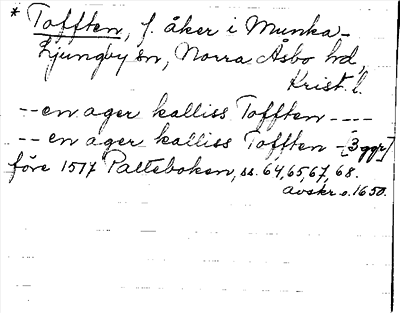 * Tofften, f. åker i Munka-
Ljungby sn, Norra Åsbo hd,
Krist. l.
-- en ager kalliss Tofften ----
-- en ager kalliss Tofften -[3 ggr]
före 1517 Palteboken, ss. 64, 65, 67, 68.
avskr. o. 1650.